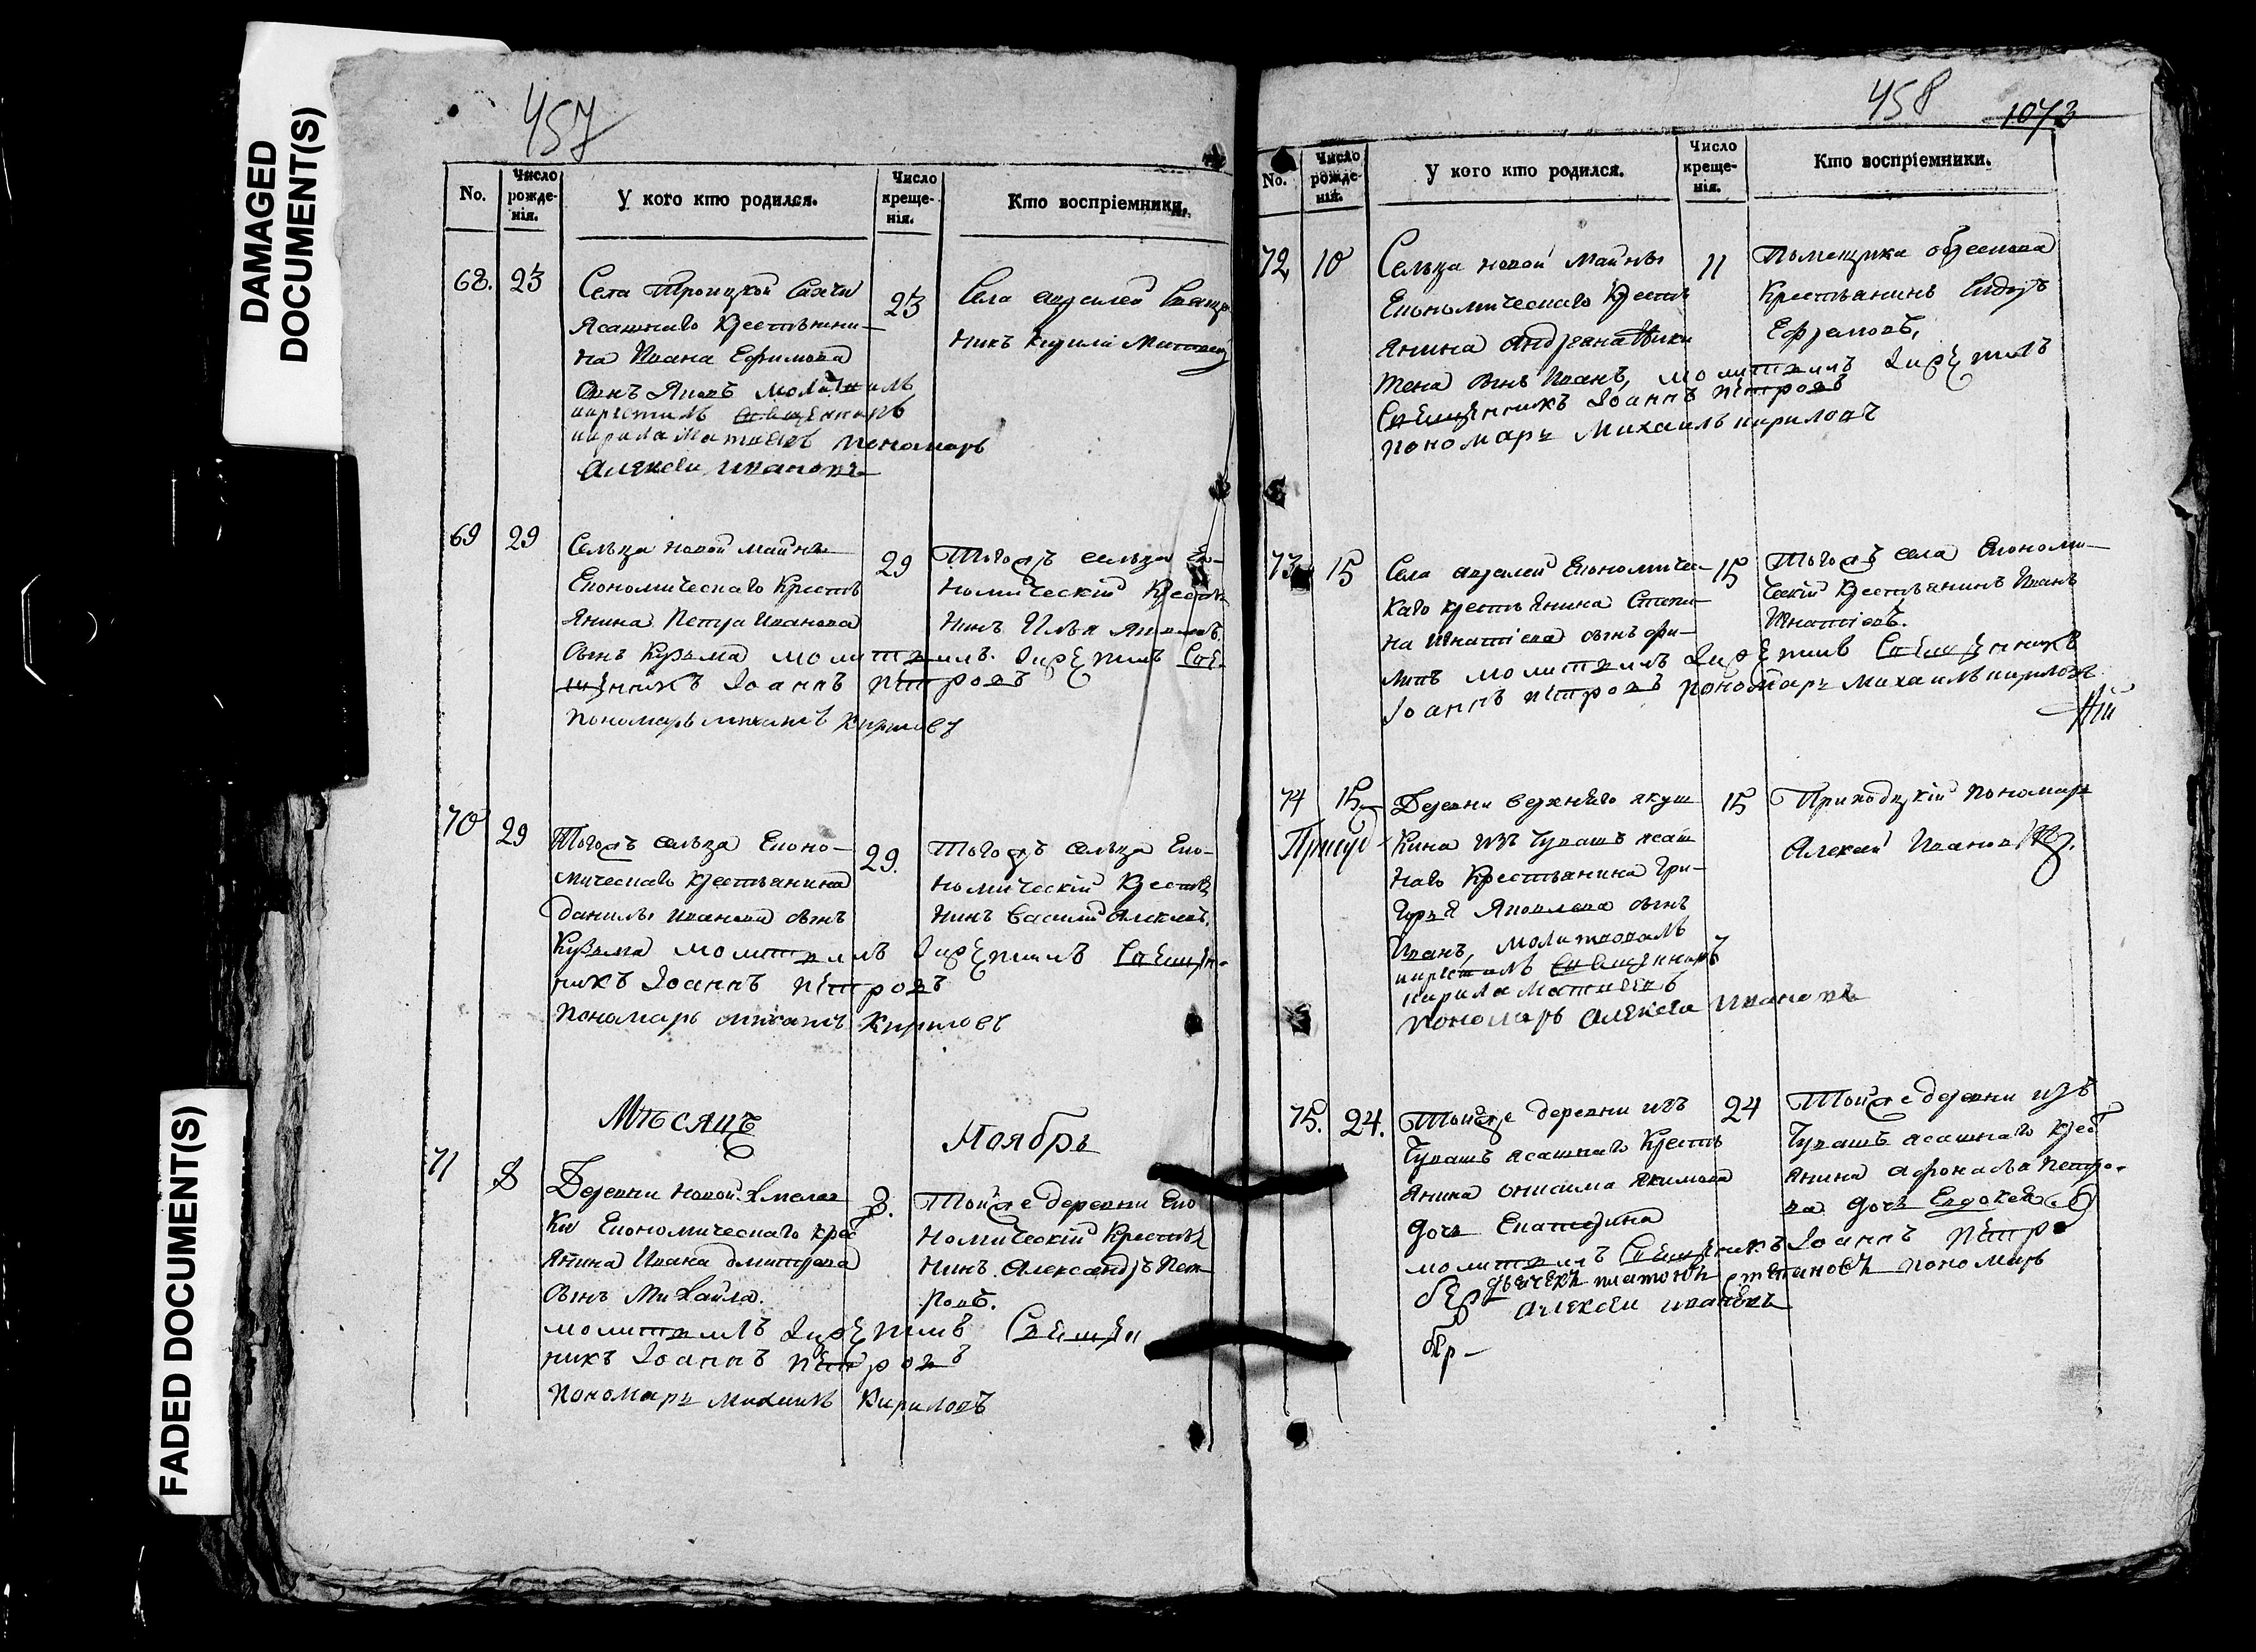 DAMAGED
DOCUMENT(S)
FADED DOCUMENT(S)
457
No.
Число рожденія.
У кого кто родился.
Число крещенія.
Кто воспріемники.
68. 23
Села Троицкой
Ясашнаго крестьяни-
на Ивана Ефимова
Сынъ Яковъ молитвилъ
икрестилъ священникъ
кирила Матвеевъ пономарь
Алексеи ивановъ
23
Села священ
никъ Кирилъ
69 29
Сельца новой майны
Економическаго Кресть
янина Петра Иванова
Сынъ Кузьма молитвилъ икрестилъ Свя
щенникъ Иоаннъ Петровъ
Пономарь михаилъ Кириловъ
29
Тогожъ сельца Еко-
номическій Крестья
нинъ Илья
70 29
Тогожъ сельца Еконо-
мическаго крестьянина
данилы иванова сынъ
Кузьма молитвилъ икрестилъ Священ-
никъ Иоаннъ Петровъ
Пономарь михаилъ Кириловъ
29.
Тогожъ сельца Еко-
номическій Крестья
нинъ Василий
Месяцъ Ноябрь
71 8
Деревни новой Хмелев
ки Економическаго крес
янина Ивана дмитриева
Сынъ Михайла.
молитвилъ икрестилъ Священ
никъ Иоаннъ Петровъ
Пономарь Михаилъ Кириловъ
8.
Тойже деревни Еко
номическій Крестья
нинъ Александръ Пет
ровъ.
458
1073
No.
Число рожденія.
У кого кто родился.
Число крещенія.
Кто воспріемники.
72 10
Сельца новой майны
Економическаго Кресть
янина Андреяна Ники
тена сынъ Иванъ, молитвилъ икрестилъ
Священникъ Иоаннъ Петровъ
пономарь Михаилъ кириловъ
11
Помещика
Крестьянинъ
Ефремовъ,
73 15
Села Економичес-
каго крестьянина Степа-
на Игнатіева сынъ фи-
липъ молитвилъ икрестилъ Священникъ
Иоаннъ петровъ пономарь михаилъ кириловъ
15
Тогожъ села Економи-
ческій Крестьянинъ Иванъ
Игнатіевъ.
74 15
Деревни верхняго якуш
кина изъ Чувашъ ясаш
наго Крестьянина Гри-
горья Яковлева сынъ
Иванъ, молитвовалъ
икрестилъ священникъ
кирила Матвеевъ
пономарь Алексеи Ивановъ
15
Приходскій пономарь
Алексей Ивановъ
75. 24.
Тойже деревни изъ
Чувашъ ясашнаго Кресть
янина Онисима Якимова
дочь Екатерина
молитвилъ Священникъ Иоаннъ Петро
дьячекъ платонъ степановъ пономарь
алексеи ивановъ
24
Тойже деревни изъ
Чувашъ ясашнаго крес
янина Афонасья Петро-
ва дочь Евдокея